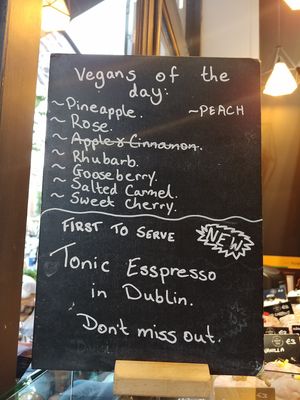 Vegans of the
day:
~Pineapple.
~PEACH
~ Rose.
~ Apple & Cinnamon.
~ Rhubarb.
~ Gooseberry.
~ Salted Carmel.
~ Sweet Cherry.
FIRST TO SERVE
NEW
Tonic Esspresso
in Dublin.
Don't miss out.